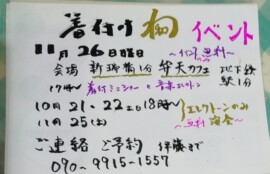 着付け 和 イベント
11月26日曜日 〜イベント無料〜
会場 新瑞橋1分 弁天カフェ 地下鉄駅1分
17時〜 着付けショーと音楽
10月21・22土日18時〜 エレクトーンのみ
11月25(土) 〜無料演奏〜
ご連絡 ご予約 伊藤まで
090-9915-1557